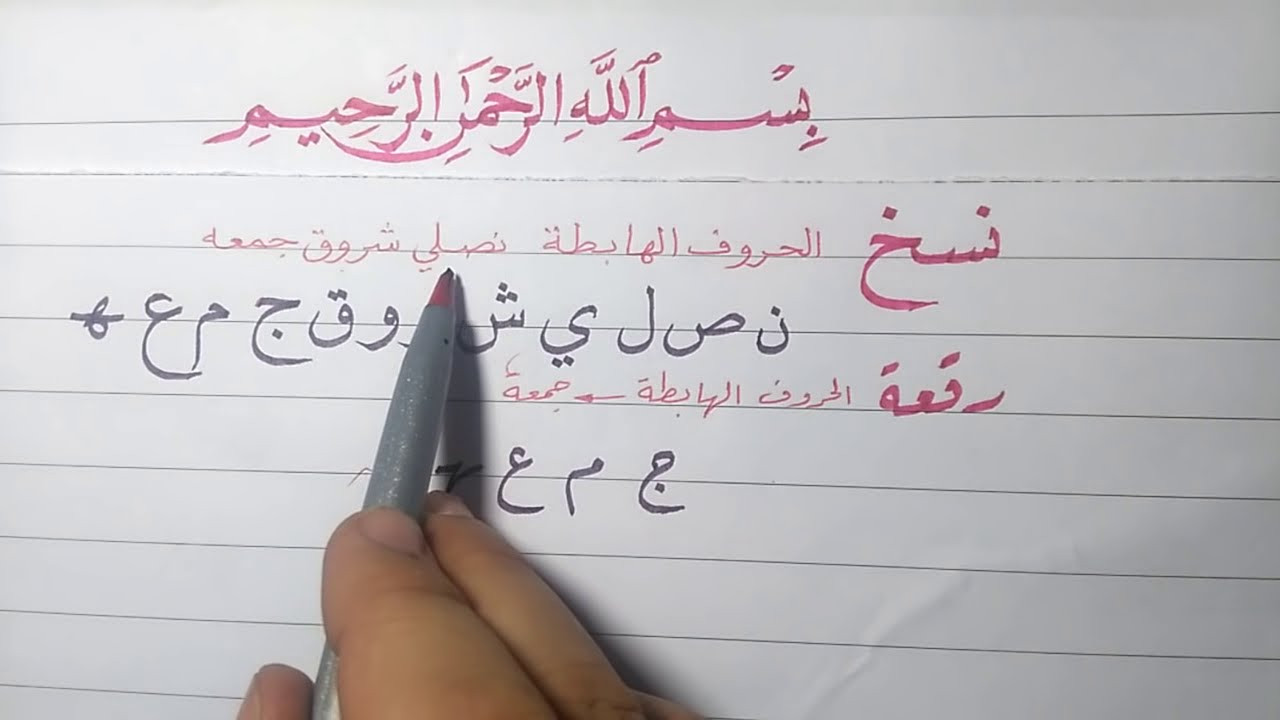 بِسْمِ ٱللَّهِ الرَّحْمَٰنِ الرَّحِيمِ
نسخ الحروف الهابطة نصلي شروق جمعه
ن ص ل ي ش و ق ج م ع ه
رقعة الحروف الهابطة جمعة
ج م ع ه